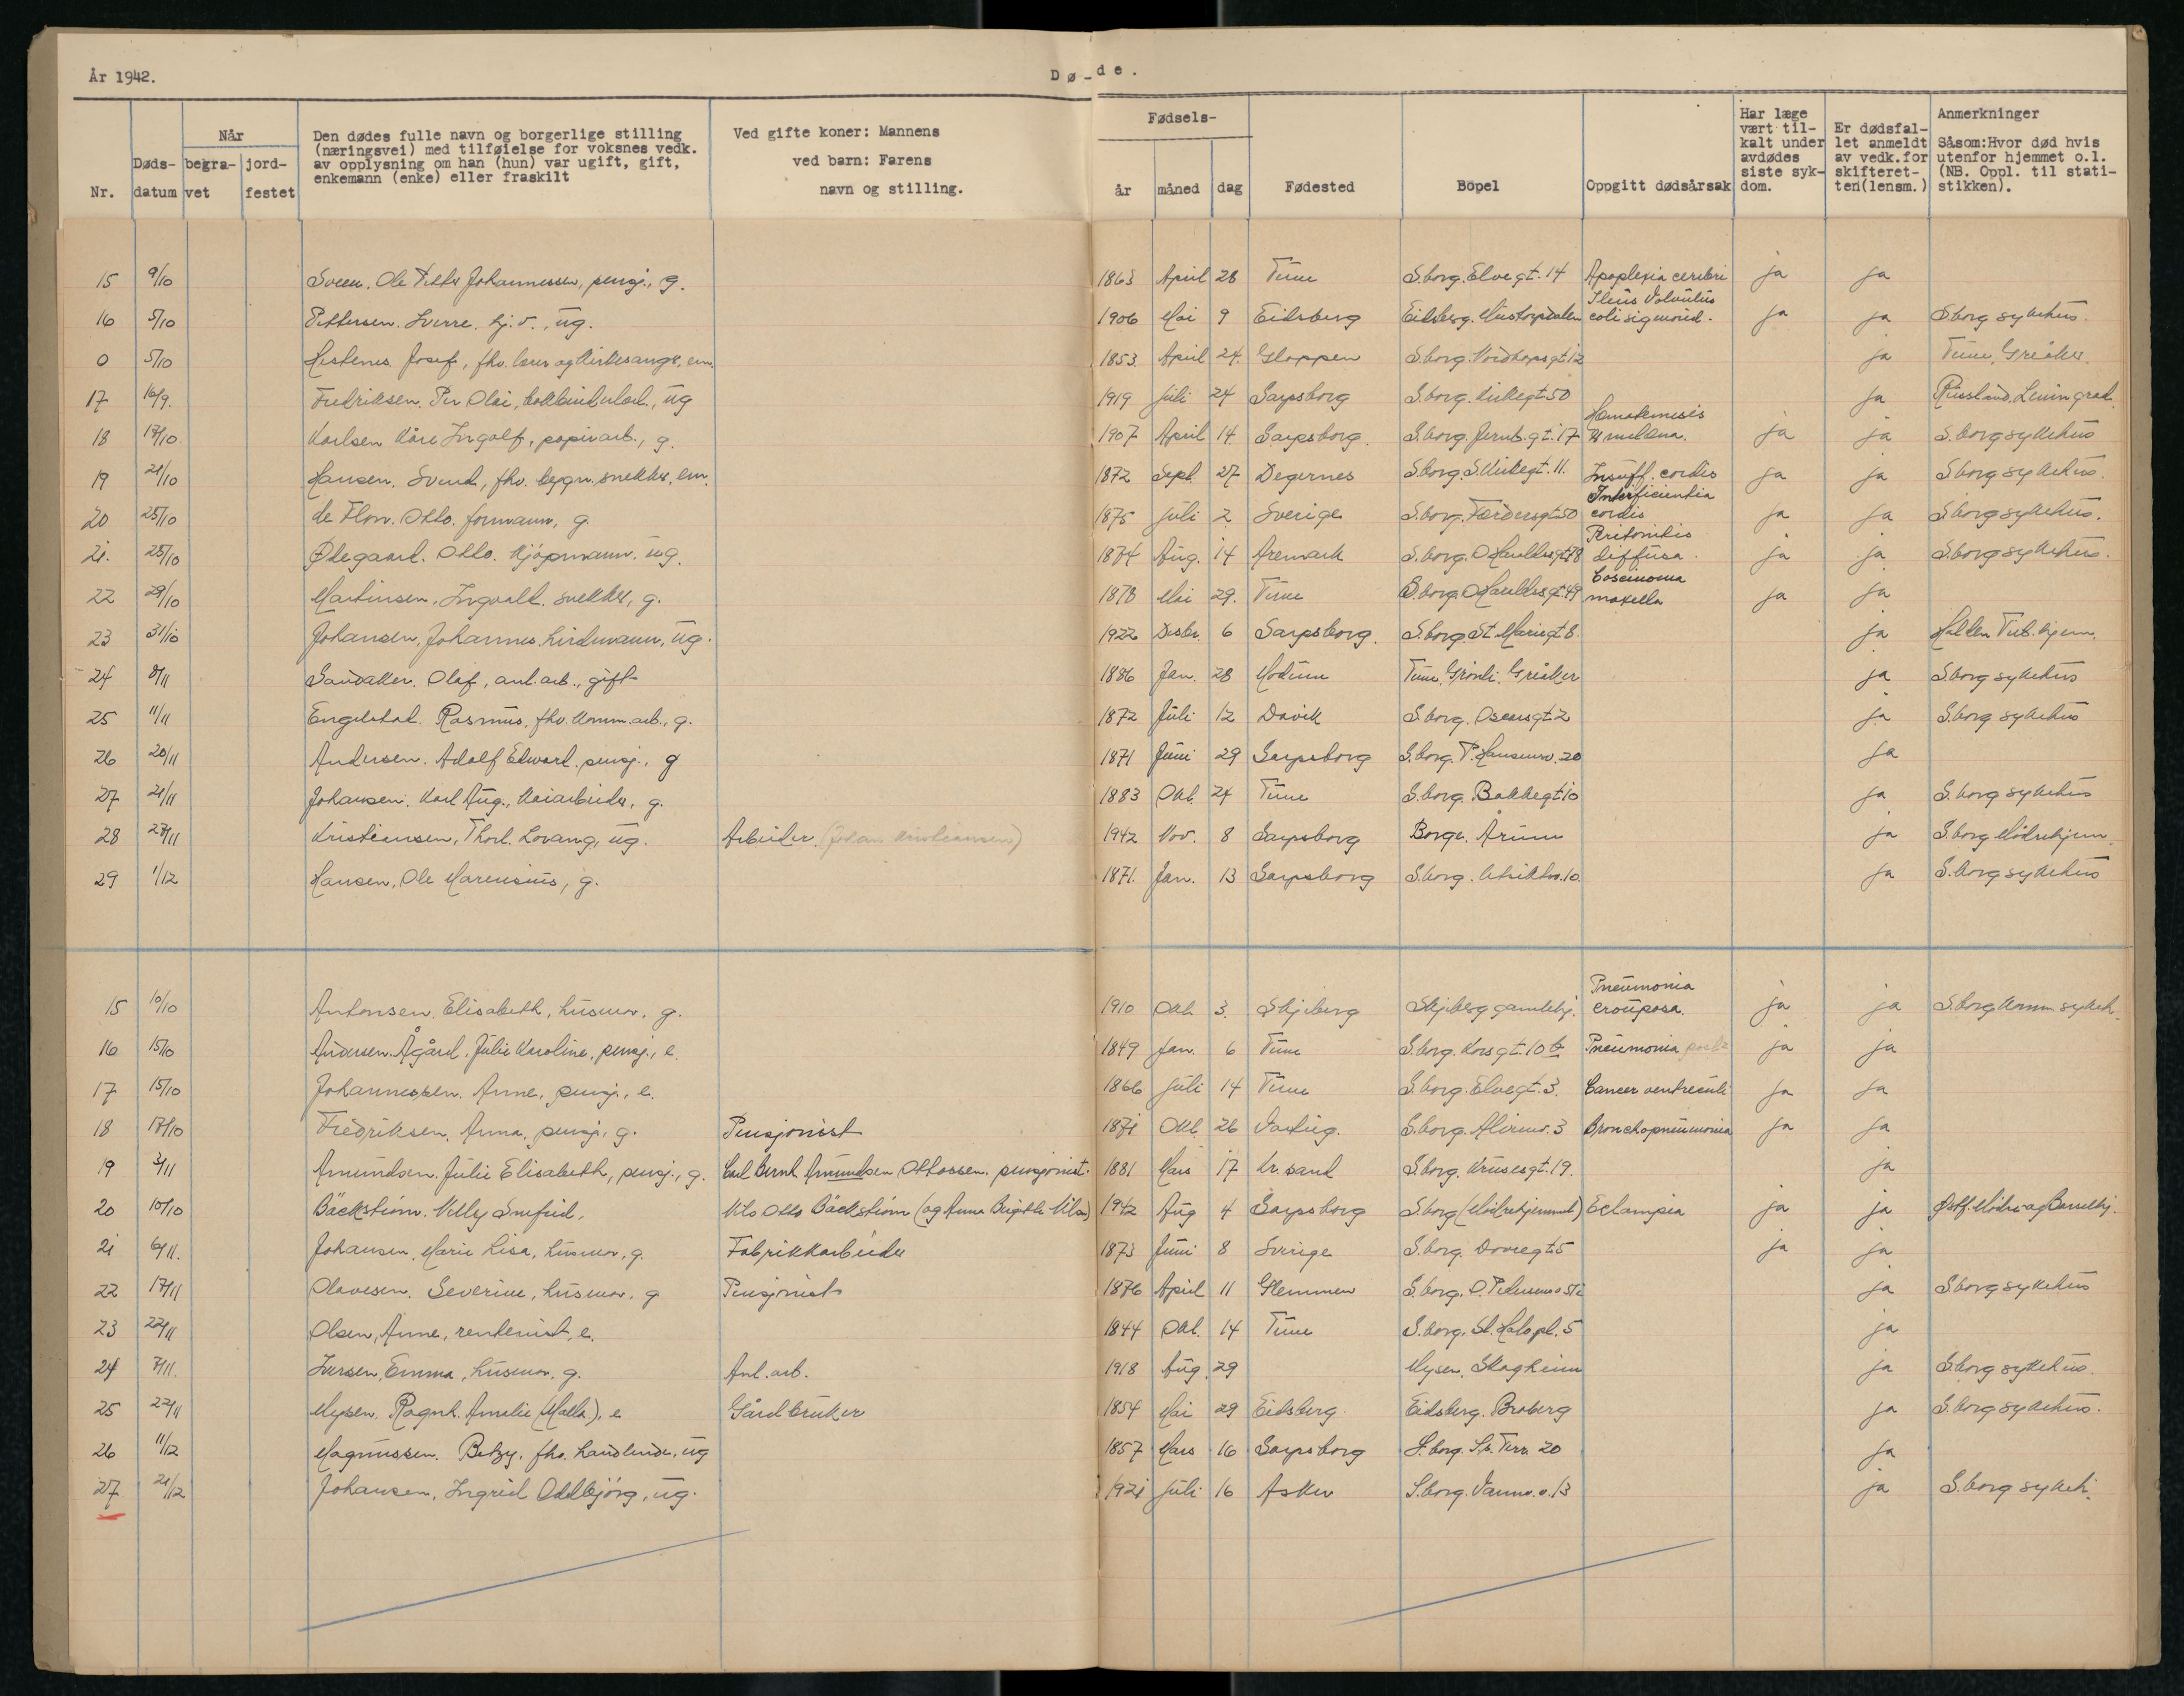 År 1942.
Dø-de.
Nr.
Døds-datum
Når
begra-vet
jord-festet
Den dødes fulle navn og borgerlige stilling
(næringsvei) med tilføielse for voksnes vedk.
av opplysning om han (hun) var ugift, gift,
enkemann (enke) eller fraskilt
Ved gifte koner: Mannens
ved barn: Farens
navn og stilling.
Fødsels-
år måned dag
Fødested
Bopel
Oppgitt dødsårsak
Har læge
vært til-
kalt under
avdødes
siste syk-
dom.
Er dødsfal-
let anmeldt
av vedk.for
skifteret-
ten(lensm.)
Anmerkninger
Såsom:Hvor død hvis
utenfor hjemmet o.l.
(NB. Oppl. til stati-
stikken).
15 9/10 Sveen. Ole Petter Johannessen, pensj., g. 1863 April 28 Tune S.borg. Elvegt. 14 Apoplexia cerebri ja ja
16 5/10 Pettersen. Sverre. hj.v., ug. 1906 Mai 9 Eidsberg Eidsberg. Ileus Volvulus coli sigmoid. ja ja S.borg sykehus.
0 5/10 Hestenes Josef, fhv. lærer og kirkesanger, em. 1853. April 24. Gloppen S.borg. gt. 12 ja Tune, Greåker.
17 16/9. Fredriksen. Per Olai, bokbinderlærl., ug 1919 Juli 24 Sarpsborg S.borg. Kirkegt. 50 ja Russland. Leningrad.
18 17/10 Karlsen Kåre Ingolf, papirarb., g. 1907 April 14 Sarpsborg. S.borg. Jernb.gt. 17 Hæmatemesis et melæna. ja ja S.borg sykehus
19 21/10 Hansen. Svend, fhv. byggn. snekker, em. 1872 Sept. 27 Degernes S.borg. S. Kirkegt. 11. Insuff. cordis ja ja S.borg sykehus.
20 25/10 de Flon. Otto. formann, g. 1875 Juli 2 Sverige S.borg. Færdersgt. 50 cordis ja ja S.borg sykehus.
21. 25/10 Ødegaard. Otto. kjøpmann. ug. 1874 Aug. 14 Aremark S.borg. O. Haraldsgt. 48 Peritonitis diffusa. ja ja S.borg sykehus.
22 29/10 Martinsen, Ingvald. snekker, g. 1878 Mai 29. Tune S.borg. O. Haraldsgt. 49 maxilla ja ja
23 31/10 Johansen, Johannes. Lindemann, ug. 1922 Desbr. 6 Sarpsborg. S.borg. St. Mariegt. 8. ja Halden Tub. hjem.
24 8/11 Sandaker. Olaf, anl.arb., gift 1886 Jan. 28 Modum Tune, Grønli, Greåker ja S.borg sykehus
25 11/11 Engelstad. Rasmus, fhv. komm.arb., g. 1872 Juli 12 Davik S.borg. Oscarsgt. 2 ja S.borg sykehus
26 20/11 Andersen. Adolf Edward. pensj., g 1871 Juni 29 Sarpsborg S.borg. P. Hansensv. 20 ja
27 21/11 Johansen. Karl Aug., kaiarbeider, g. 1883 Okt. 24 Tune S.borg. Bakkegt 10 ja S.borg sykehus
28 27/11 Kristiansen, Thorl. Lovang, ug. Arbeider. (Johan Kristiansen) 1942 Nov. 8 Sarpsborg Borge. Årum ja S.borg Mødrehjem.
29 1/12 Hansen, Ole Marensius, g. 1871. Jan. 13 Sarpsborg S.borg. 10. ja S.borg sykehus
15 10/10 Antonsen. Elisabeth, husmor, g. 1910 Okt. 3. Skjeberg Skjeberg gamlehj. Pneumonia crouposa. ja ja S.borg komm. sykeh.
16 15/10 Andersen. Ågård, Julie Karoline, pensj., e. 1849 Jan. 6 Tune S.borg. Korsgt. 10 b Pneumonia ja ja
17 15/10 Johannessen. Anne, pensj., e. 1866 Juli 14 Tune S.borg. Elvegt. 3. Cancer ventriculi ja ja
18 17/10 Fredriksen. Anna, pensj., g. Pensjonist 1871 Okt. 26 Varteig. S.borg. 3 Bronchopneumonia ja ja
19 3/11 Amundsen. Julie Elisabeth, pensj., g. Carl Bernh. Amundsen Ottossen. pensjonist. 1881 Mars 17 Kr.sand S.borg. Krusesgt. 19. ja
20 10/10 Bäckström. Milly Snefrid, Nils Otto Bäckström (og Anna Birgitte Nilsen) 1942 Aug 4 Sarpsborg S.borg (Mødrehjemmet) Eclampsia ja ja Østf. Mødre- og Barselhj.
21 6/11. Johansen. Marie Lisa, husmor, g. Fabrikkarbeider 1873 Juni 8 Sverige S.borg. Dovregt. 5 ja ja
22 17/11 Olavesen. Severine, husmor, g Pensjonist 1876 April 11 Glemmen S.borg. O. Pedersensv. ja S.borg sykehus
23 22/11 Olsen, Anne, rentenist, e. 1844 Okt. 14 Tune S.borg. St. Halvpl. 5 ja
24 7/11. Iversen, Emma, husmor. g. Anl. arb. 1918 Aug. 29 Mysen. Skogheim ja S.borg sykehus.
25 22/11 Mysen. Ragnh. Amalie (Malla), e Gårdbruker 1854 Mai 29 Eidsberg. Eidsberg. Broberg ja S.borg sykehus.
26 11/12 Magnussen. Betzy. fhv. handlende, ug 1857 Mars 16 Sarpsborg S.borg. Terr. 20 ja
27. 21/12 Johansen, Ingrid Oddbjörg, ug. 1921 Juli 16 Asker S.borg. 13 ja S.borg sykeh.